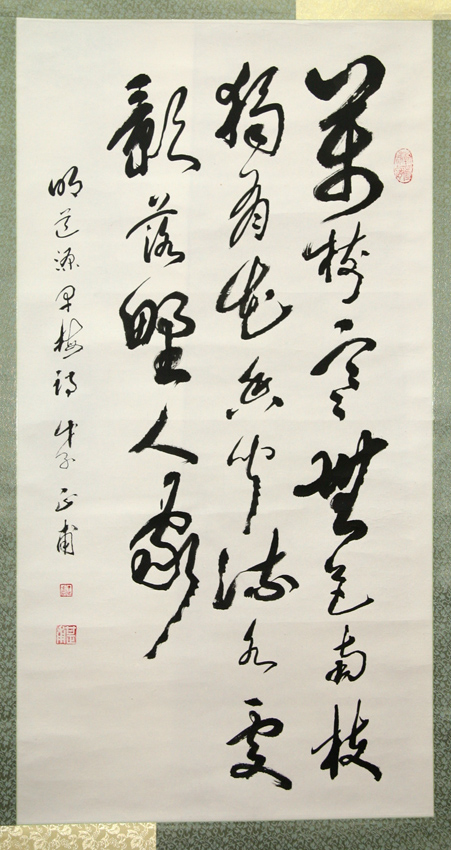 萬樹寒無色南枝
獨有花香聞流水處
影落野人家
明道源早梅詩 戊子 正甫